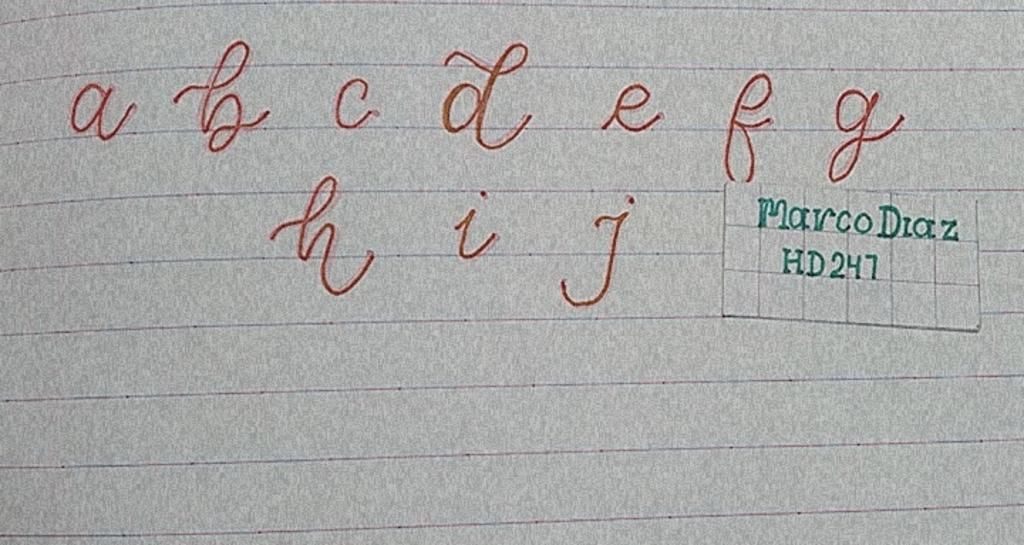 a b c d e f g
h i j
Marco Diaz
HD247